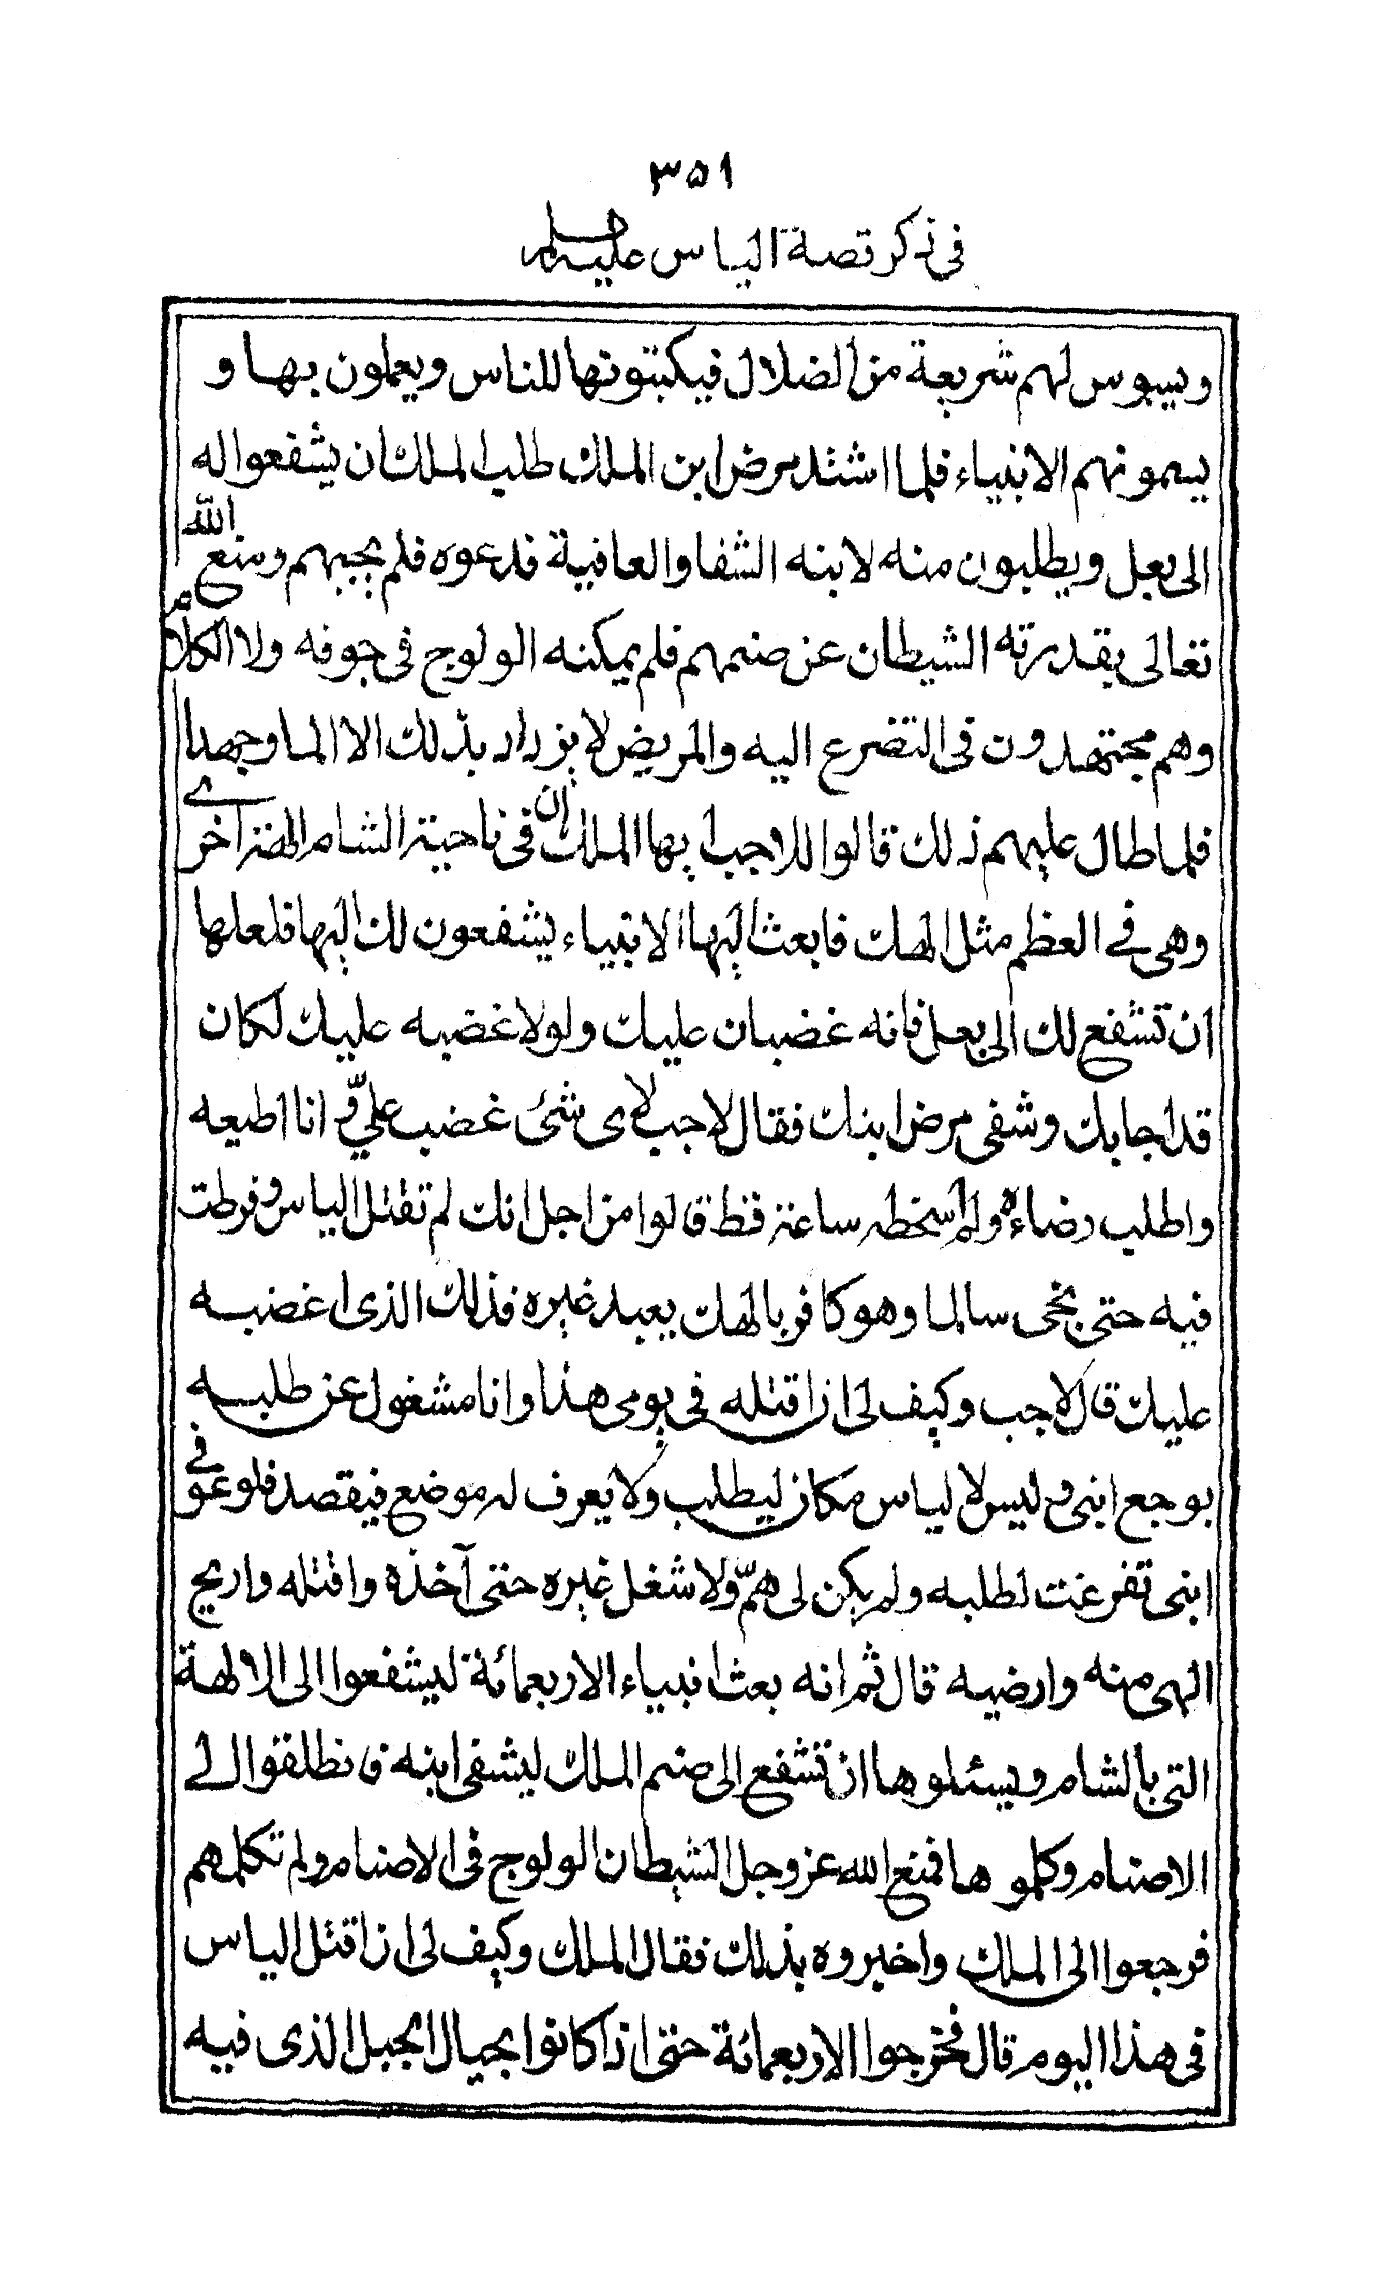 ٣٥١
في ذكر قصة الياس عليه السلم
ويسوس لهم شريعة من الضلال فيكتبونها للناس ويعملون بها و
يسمونهم الانبياء فلما اشتد مرض ابن الملك طلب الملك ان يشفعوا له
الى بعل ويطلبون منه لابنه الشفا والعافية فدعوه فلم يجبهم ومنع الله
تعالى بقدرته الشيطان عن صنمهم فلم يمكنه الولوج فى جوفه ولا الكلام
وهم مجتهدون فى التضرع اليه والمريض لا يزداد بذلك الا الما وجهدا
فلما طال عليهم ذلك قالوا للاجب ايها الملك ان فى ناحية الشام الهة اخرى
وهى في العظم مثل الهك فابعث اليها الانبياء يشفعون لك اليها فلعلها
ان تشفع لك الى بعل فانه غضبان عليك ولولا غضبه عليك لكان
قد اجابك وشفى مرض ابنك فقال لاجب لاى شئ غضب عليّ و انا اطيعه
واطلب رضاءه ولم اسخطه ساعة قط قالوا من اجل انك لم تقتل الياس وفرطت
فيه حتى نجى سالما وهو كافر بالهك يعبد غيره فذلك الذى اغضبه
عليك قال لاجب وكيف لى ان اقتله فى يومى هذا وانا مشغول عن طلبه
بوجع ابنى و ليس لالياس مكان ليطلب ولا يعرف له موضع فيقصد فلو عوفي
ابنى تفرغت لطلبه ولم يكن لى همّ ولا شغل غيره حتى آخذه واقتله واريح
الهى منه وارضيه قال ثم انه بعث انبياء الاربعمائة ليشفعوا الى الالهة
التى بالشام ويسئلوها ان تشفع الى صنم الملك ليشفى ابنه فانطلقوا الى
الاصنام وكلموها فمنع الله عز وجل الشيطان الولوج فى الاصنام ولم تكلمهم
فرجعوا الى الملك واخبروه بذلك فقال الملك وكيف لى ان اقتل الياس
فى هذا اليوم قال فخرجوا الاربعمائة حتى اذا كانوا بحيال الجبل الذى فيه